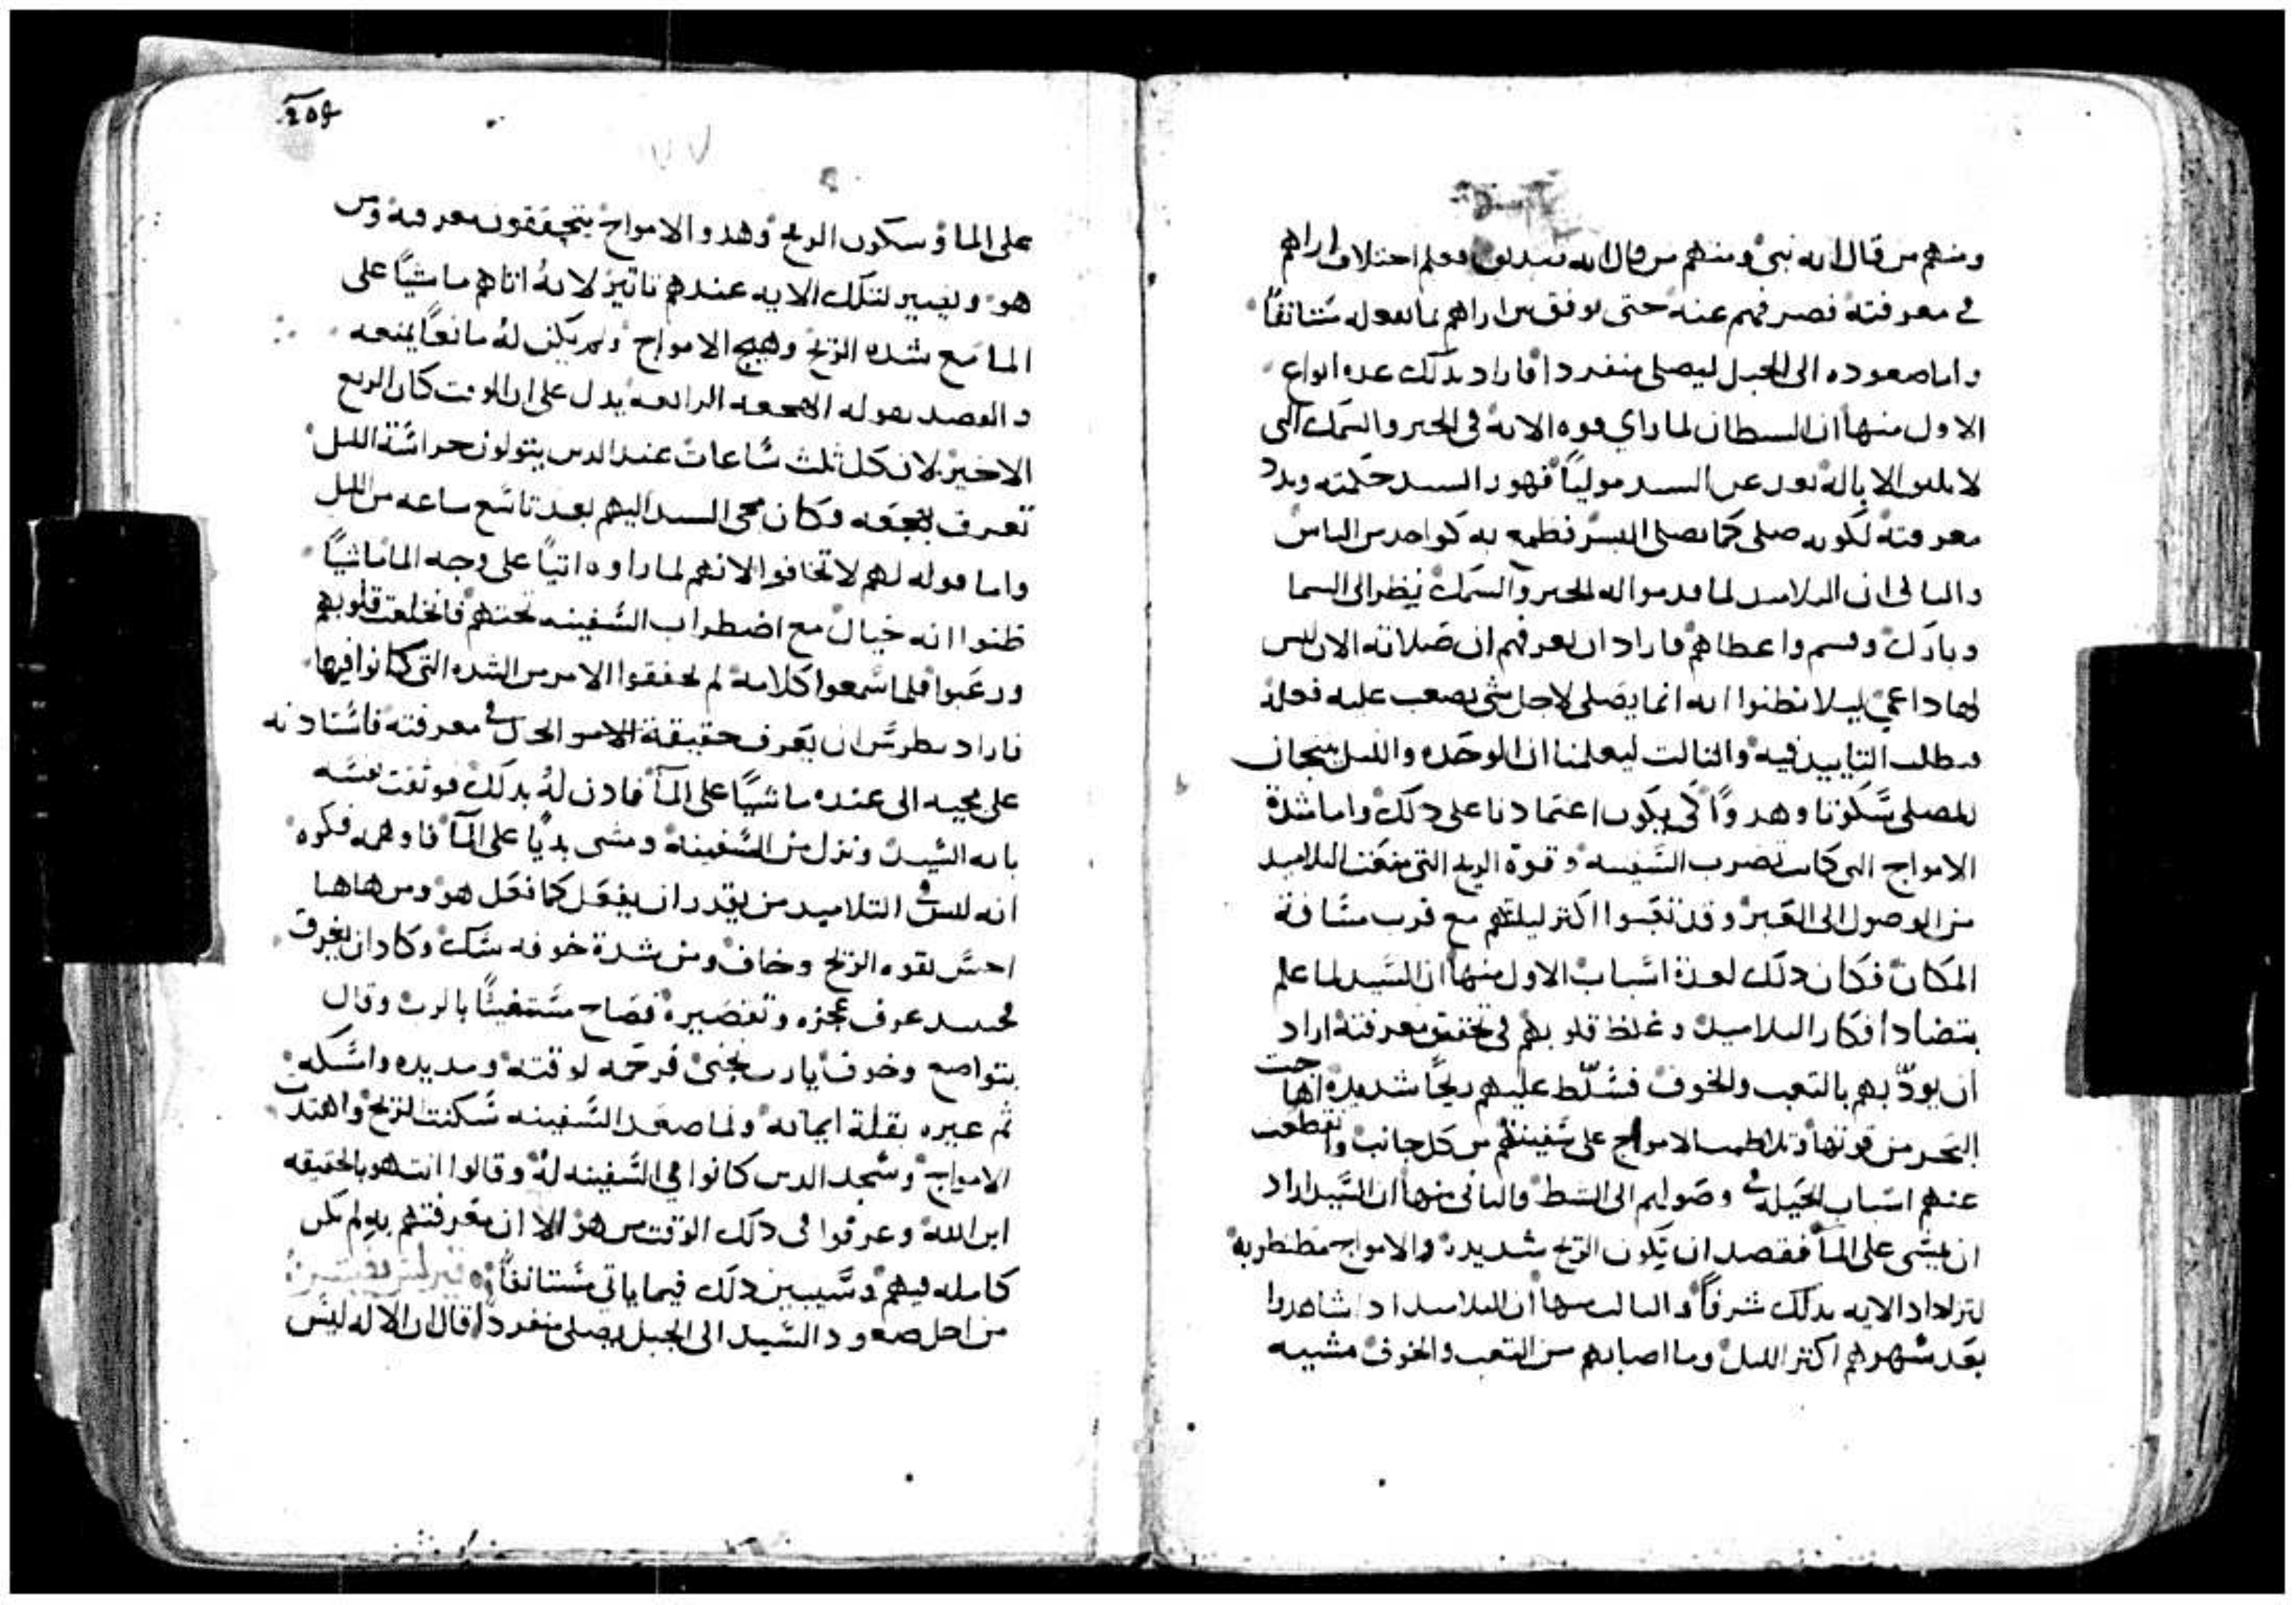 ومنهم من قال انه نبي ومنهم من قال انه صديق فعلم اختلاف اراهم
في معرفته فصرفهم عنه حتى يوفق بين اراهم بما يفعله مستانفاً
واما صعوده الى الجبل ليصلي منفرداً فاراد بذلك عدة انواع
الاول منها ان السيطان لما راي قوه الايه في الخبز والسمك التي
لا تليق الا باله نفر عن السيد موليا فهور السيد حكمته وبدد
معرفته لكونه صلى كما يصلي البشر فطمع به كواحد من الناس
والتاني ان التلاميد لما قدموا له الخبز والسمك نظر الى السما
وبارك وقسم واعطاهم فاراد ان يعرفهم ان صلاته الان ليس
لها داعي ليلا يظنوا انه انما يصلي لاجل شي يصعب عليه فعله
فيطلب التاييد فيه والتالت ليعلمنا ان الوحده والليل ينجان
للمصلي سكوتا وهدوًا كي يكون اعتمادنا على دلك واما شدة
الامواج التي كانت تضرب السفينه وقوة الريح التي منعت التلاميد
من الوصول الى العبر وقد تعبوا اكتر ليلتهم مع قرب مسافة
المكان فكان دلك لعدة اسباب الاول منها ان السيد لما علم
بتضاد افكار التلاميد وغلظ قلوبهم في تحقيق معرفته اراد
ان يودبهم بالتعب والخوف فسلط عليهم ريحًا شديدة اهاجت
البحر من قوتها وتلاطمت الامواج على سفينتهم من كل جانب وانقطعت
عنهم اسباب الحيلة في وصولهم الى الشط والتاني منها ان السيد اراد
ان يمشي على الما فقصد ان تكون الريح شديدة والامواج مظطربة
لتزداد الايه بدلك شرفاً والتالت منها ان التلاميد اد شاهدوا
بعد سهرهم اكتر الليل وما اصابهم من التعب والخوف مشييه
على الما وسكون الريح وهدو الامواج يتحققون معرفته ومن
هو ويصير لتلك الايه عندهم تاتير لانه اتاهم ماشياً على
الما مع شده الريح وهيج الامواج ولم يكن له مانعاً يمنعه
والقصد بقوله الهجعه الرابعه يدل على ان الوقت كان الربع
الاخير لان كل ثلث ساعات عند الدين يتولون حراسة الليل
تعرف بهجعه وكان مجي السيد اليهم بعد تاسع ساعه من الليل
واما قوله لهم لا تخافوا لانهم لما راوه اتياً على وجه الما ماشياً
ظنوا انه خيال مع اضطراب السفينه تحتهم فانخلعت قلوبهم
ورعبوا فلما سمعوا كلامه لم يحققوا الامر من الشده التي كانوا فيها
فاراد بطرس ان يعرف حقيقة الامر في معرفته فاستادنه
على مجيه الى عنده ماشيًا على الما فادن له بدلك فوثقت نفسه
بانه السيد ونزل من السفينة ومشى بديًا على الما فاوهمه فكره
انه ليس في التلاميد من يقدر ان يفعل كما فعل هو ومن هاهنا
احس بقوه الريح وخاف ومن شدة خوفه شك وكاد ان يغرق
فحينيد عرف عجزه وتقصيره فصاح مستغيثًا بالرب وقال
بتواضع وخوف يا رب نجني فرحمه لوقته ومد يده وامسكه
ثم عيره بقلة ايمانه ولما صعد السفينه سكنت الريح واهتدت
الامواج وسجد الدين كانوا في السفينه له وقالوا انت هو بالحقيقه
ابن الله وعرفوا في دلك الوقت من هو الا ان معرفتهم به لم تكن
كامله فيهم وسيبين دلك فيما ياتي مستانفاً
من اجل صعود السيد الى الجبل يصلي منفرداً قال ان الاله ليس